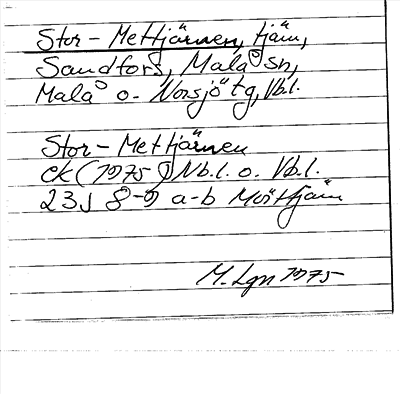 Stor-Mettjärnen, tjärn,
Sandfors, Malå sn,
Malå o. Norsjö tg, Vb.l.
Stor-Mettjärnen
ek (1975) Nb.l. o. Vb.l.
23J 8-9 a-b Mörttjärn
M. Lgn 1975